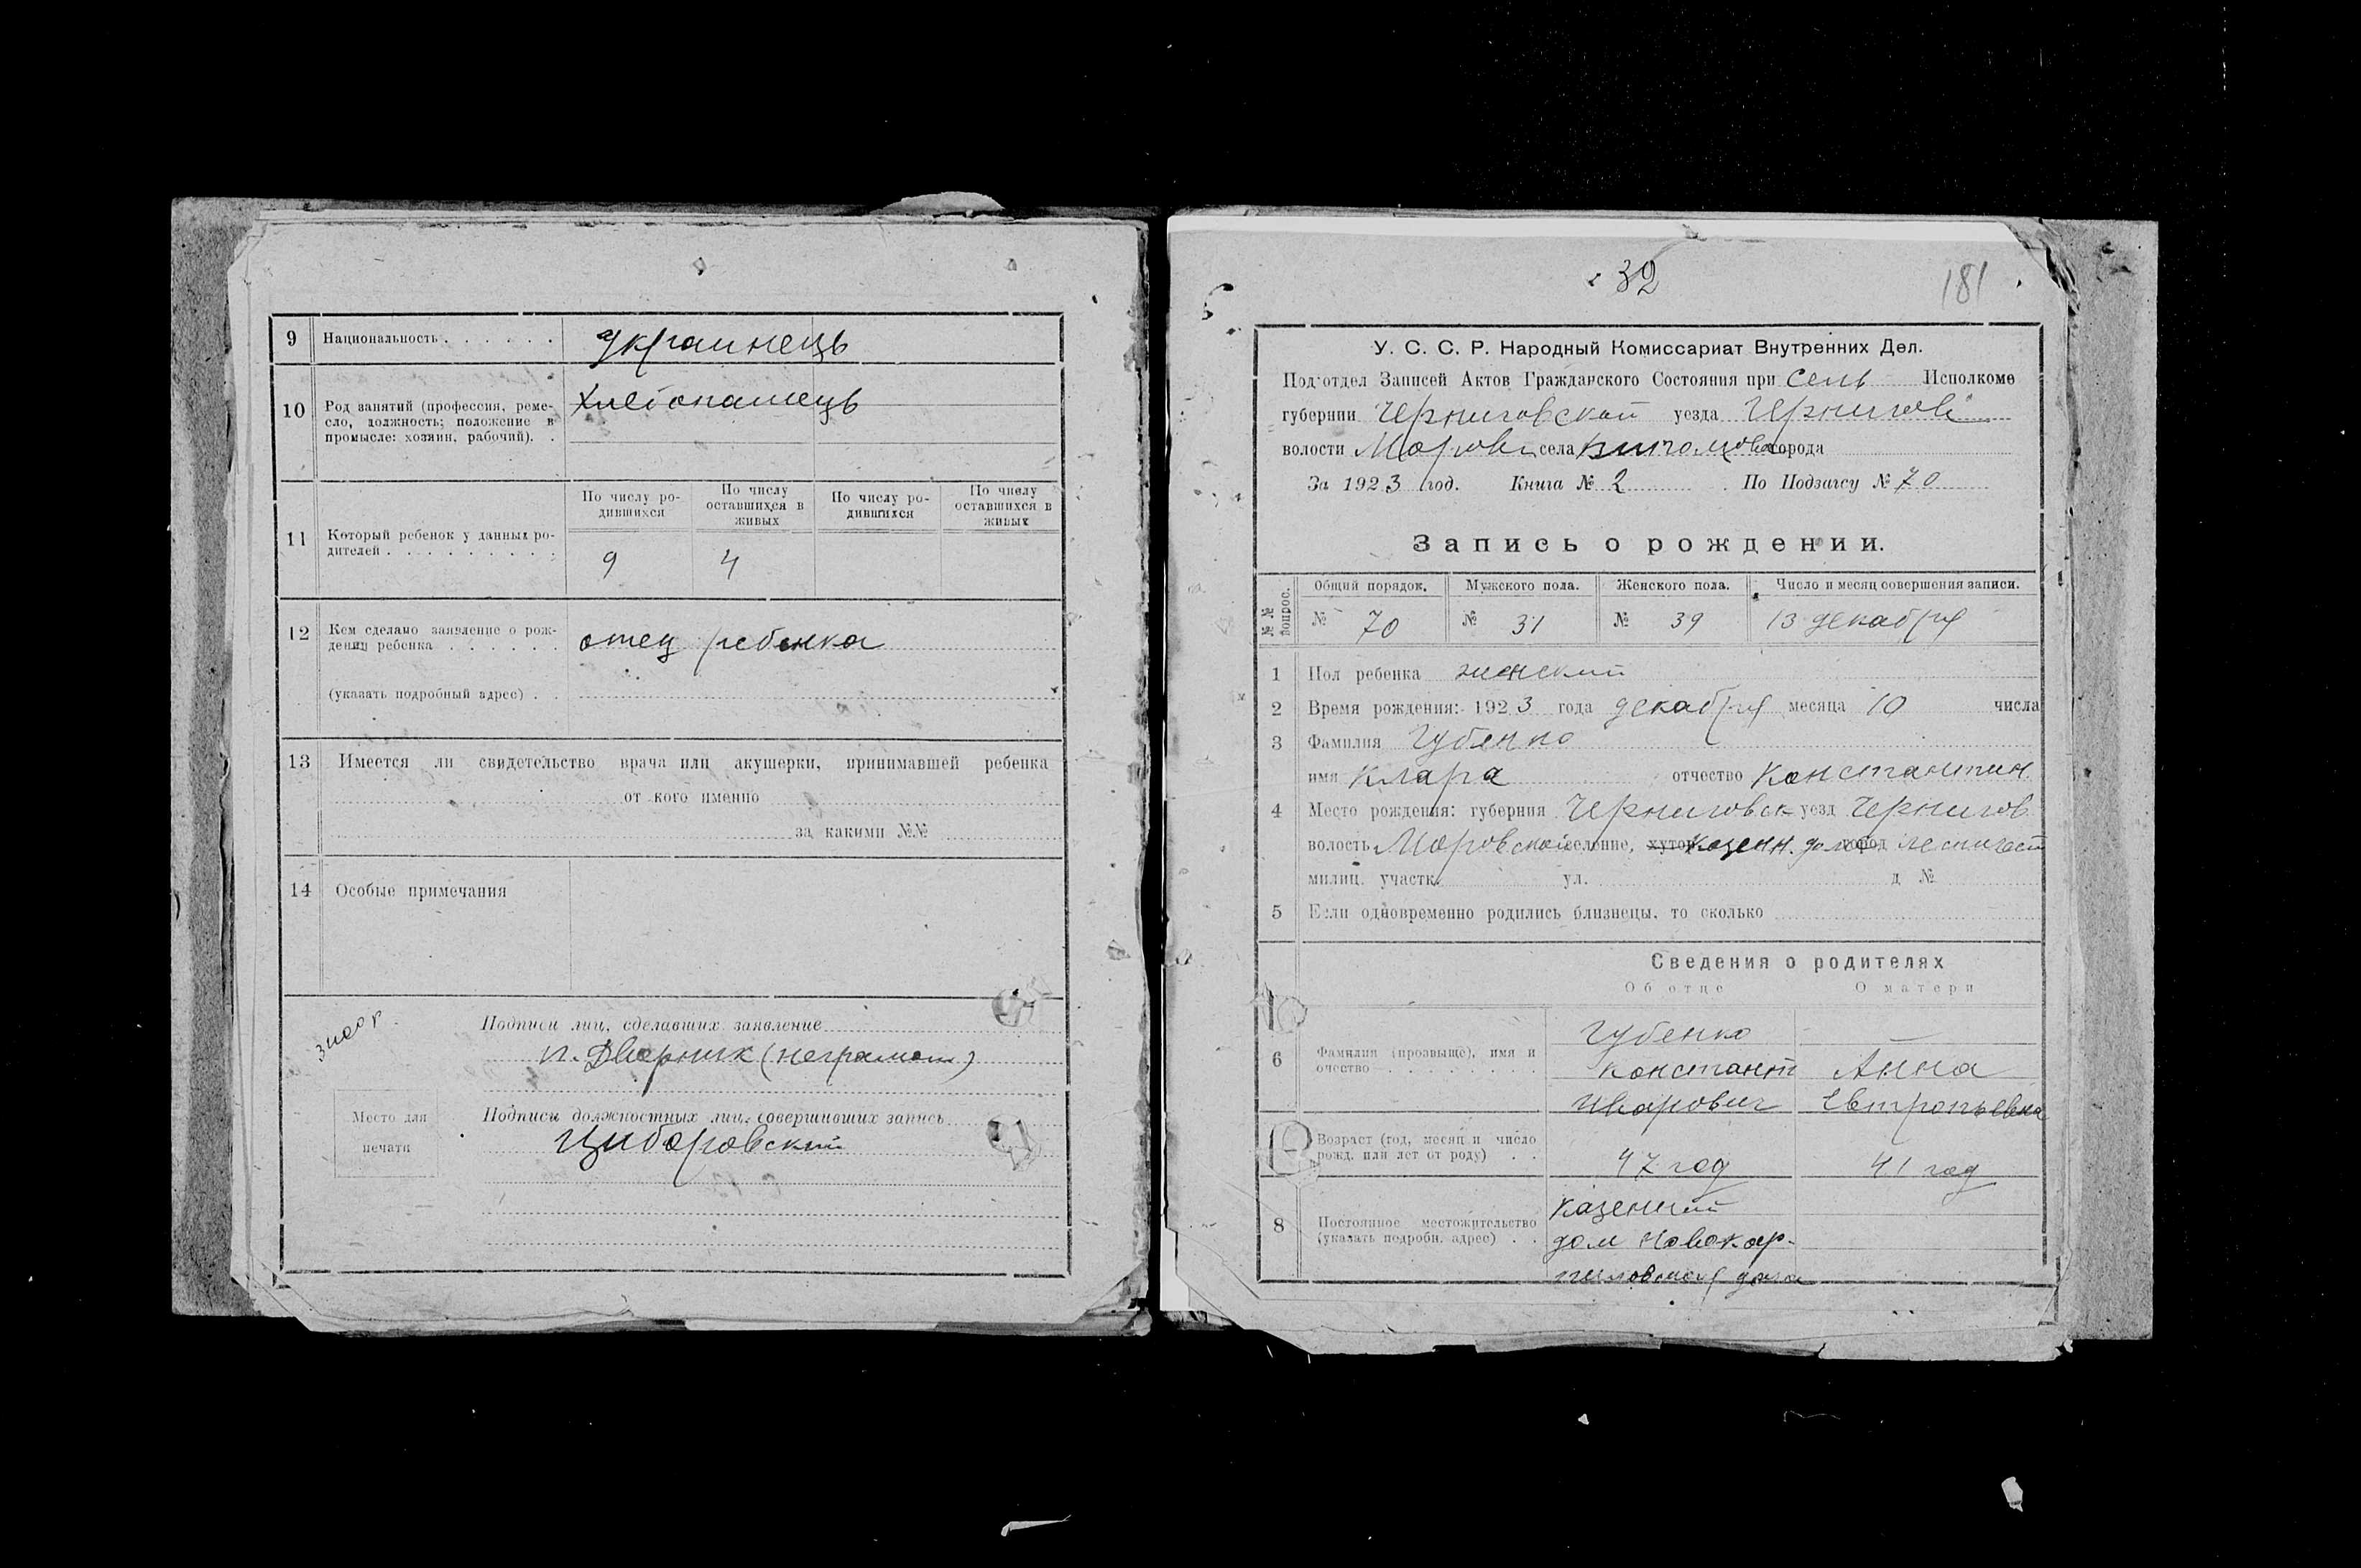 9 Национальность . . . . . . украинець
10 Род занятий (профессия, реме-
сло, должность; положение в
промысле: хозяин, рабочий). .
Хлебопашець
11 Который ребенок у данных ро-
дителей . . . . . . . . .
По числу ро-
дившихся
По числу
оставшихся в
живых
По числу ро-
дившихся
По числу
оставшихся в
живых
9 4
12 Кем сделано заявление о рож-
дении ребенка . . . . . .
отец ребенка
(указать подробный адрес) . .
13 Имеется ли свидетельство врача или акушерки, принимавшей ребенка
от кого именно
за какими №№
14 Особые примечания
Подписи лиц, сделавших заявление
Дворник (неграмот)
Место для
печати
Подписи должностных лиц, совершивших запись
Циборовский
32
181
У. С. С. Р. Народный Комиссариат Внутренних Дел.
Под'отдел Записей Актов Гражданского Состояния при сель Исполкоме
губернии Черниговской уезда Чернигов
волости Моровс села города
За 1923 год. Книга № 2 По Подзагсу № 70
Запись о рождении.
№№ вопрос.
Общий порядок. Мужского пола. Женского пола. Число и месяц совершения записи.
№ 70 № 31 № 39 13 декабря
1 Пол ребенка женский
2 Время рождения: 1923 года декабря месяца 10 числа
3 Фамилия Губенко
имя Клара отчество Константин
4 Место рождения: губерния Черниговск уезд Чернигов
волость Моровской селение, хутор казенн. дом город лесничест
милиц. участк. ул. д №
5 Если одновременно родились близнецы, то сколько
Сведения о родителях
Об отце О матери
6 Фамилия (прозвыще), имя и
очество . . . . . . . .
Губенко —
Констант Анна
Иванович Евтропьевна
Возраст (год, месяц и число
рожд. или лет от роду) . .
47 год 41 год
8 Постоянное местожительство
(указать подробн. адрес) . .
казенный
дом Новокар-
пиловская дача